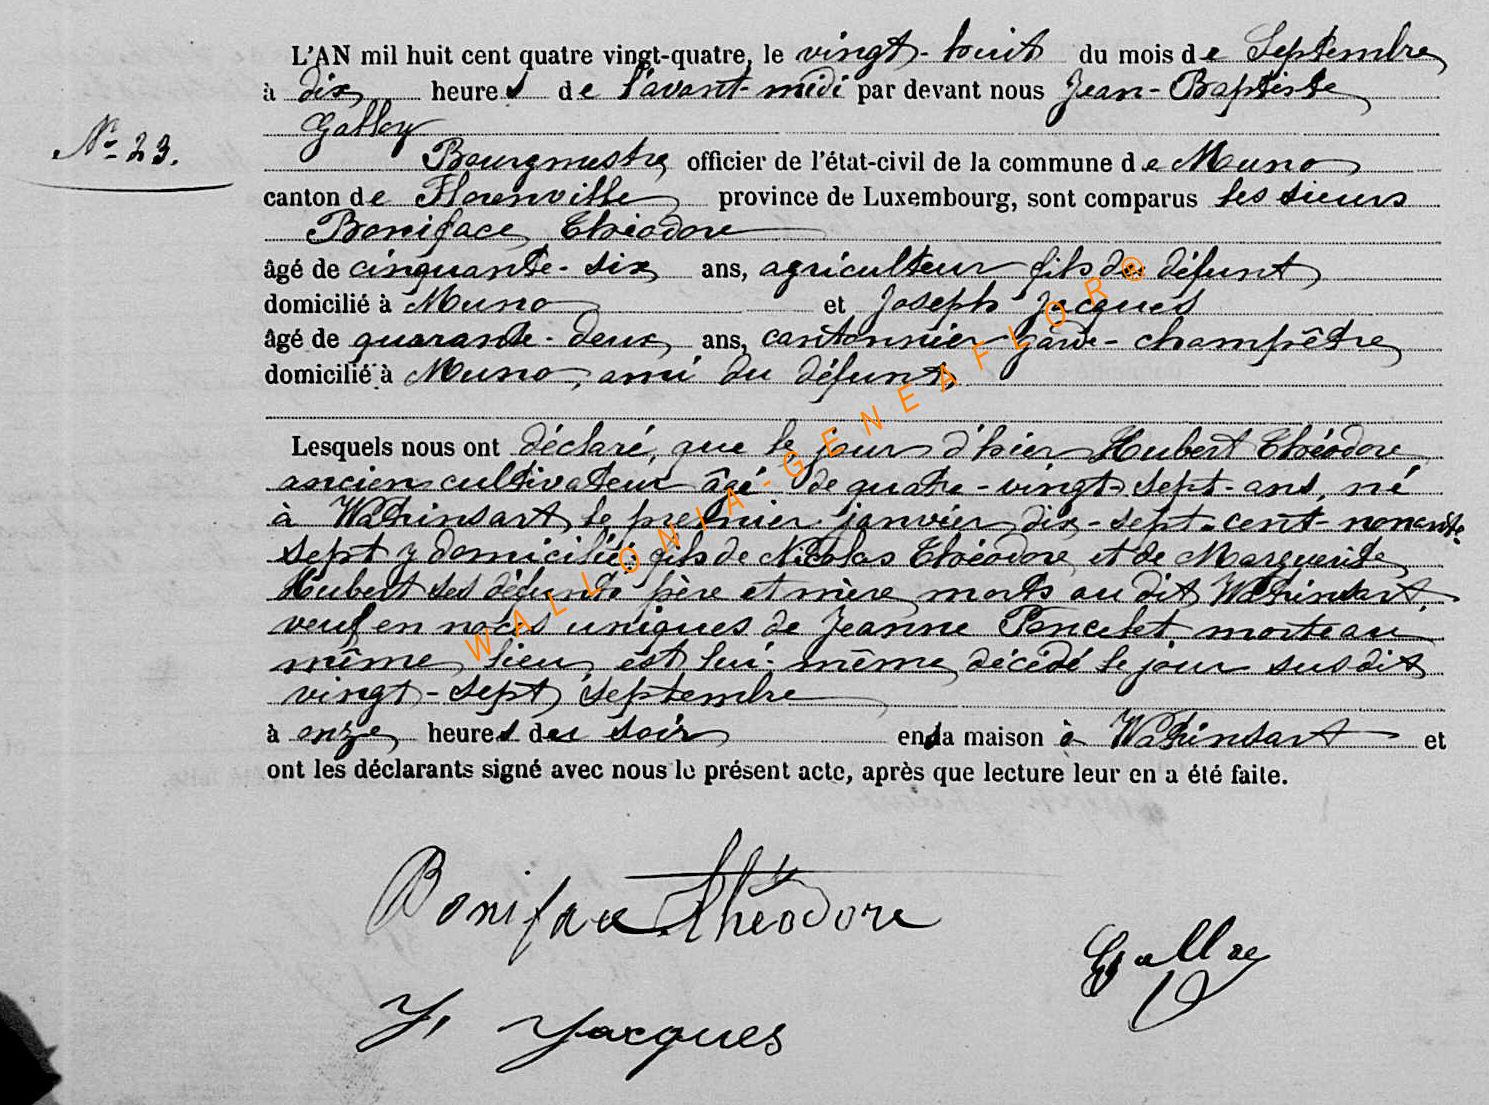 L'AN mil huit cent quatre vingt-quatre, le vingt-huit du mois de Septembre
à dix heures de l'avant-midi par devant nous Jean-Baptiste
Galloy
N° 23.
Bourgmestre, officier de l'état-civil de la commune de Muno
canton de Florenville province de Luxembourg, sont comparus les sieurs
Boniface Théodore
âgé de cinquante-six ans, agriculteur fils du défunt
domicilié à Muno et Joseph Jacques
âgé de quarante-deux ans, cantonnier garde-champêtre
domicilié à Muno, ami du défunt,
Lesquels nous ont déclaré, que le jour d'hier Hubert Théodore
ancien cultivateur âgé de quatre-vingt-sept-ans, né
à Watrinsart le premier janvier dix-sept-cent-nonante-
sept y domicilié fils de Nicolas Théodore et de Marguerite
Hubert ses défunts père et mère morts au dit Watrinsart,
veuf en noces uniques de Jeanne Poncelet morte au
même lieu est lui-même décédé le jour susdit
vingt-sept septembre
à onze heures du soir en sa maison à Watrinsart et
ont les déclarants signé avec nous le présent acte, après que lecture leur en a été faite.
Boniface Théodore
Galloy
J. Jacques
WALLONIA-GENEAFLOR®